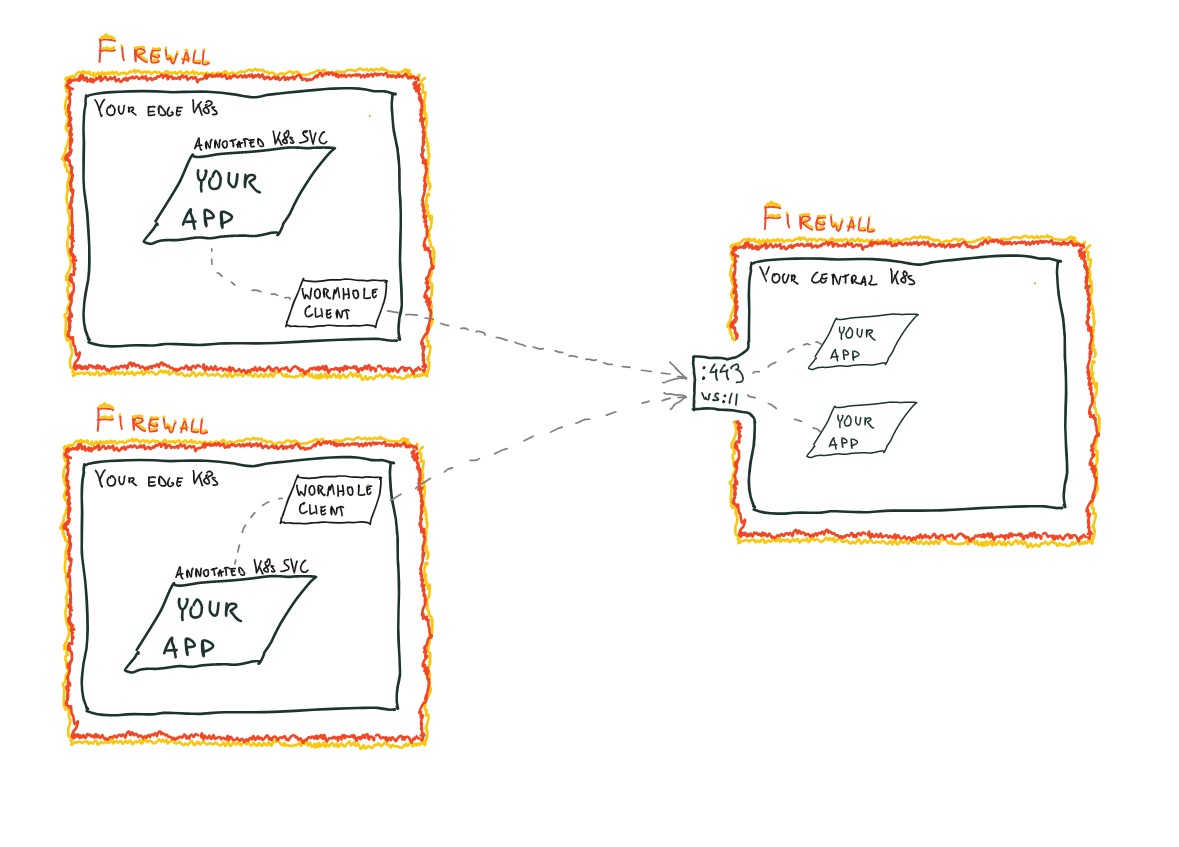 FIREWALL
YOUR EDGE K8s
ANNOTATED K8s SVC
YOUR
APP
WORMHOLE
CLIENT
FIREWALL
YOUR EDGE K8s
WORMHOLE
CLIENT
ANNOTATED K8s SVC
YOUR
APP
FIREWALL
YOUR CENTRAL K8s
YOUR
APP
:443
ws://
YOUR
APP